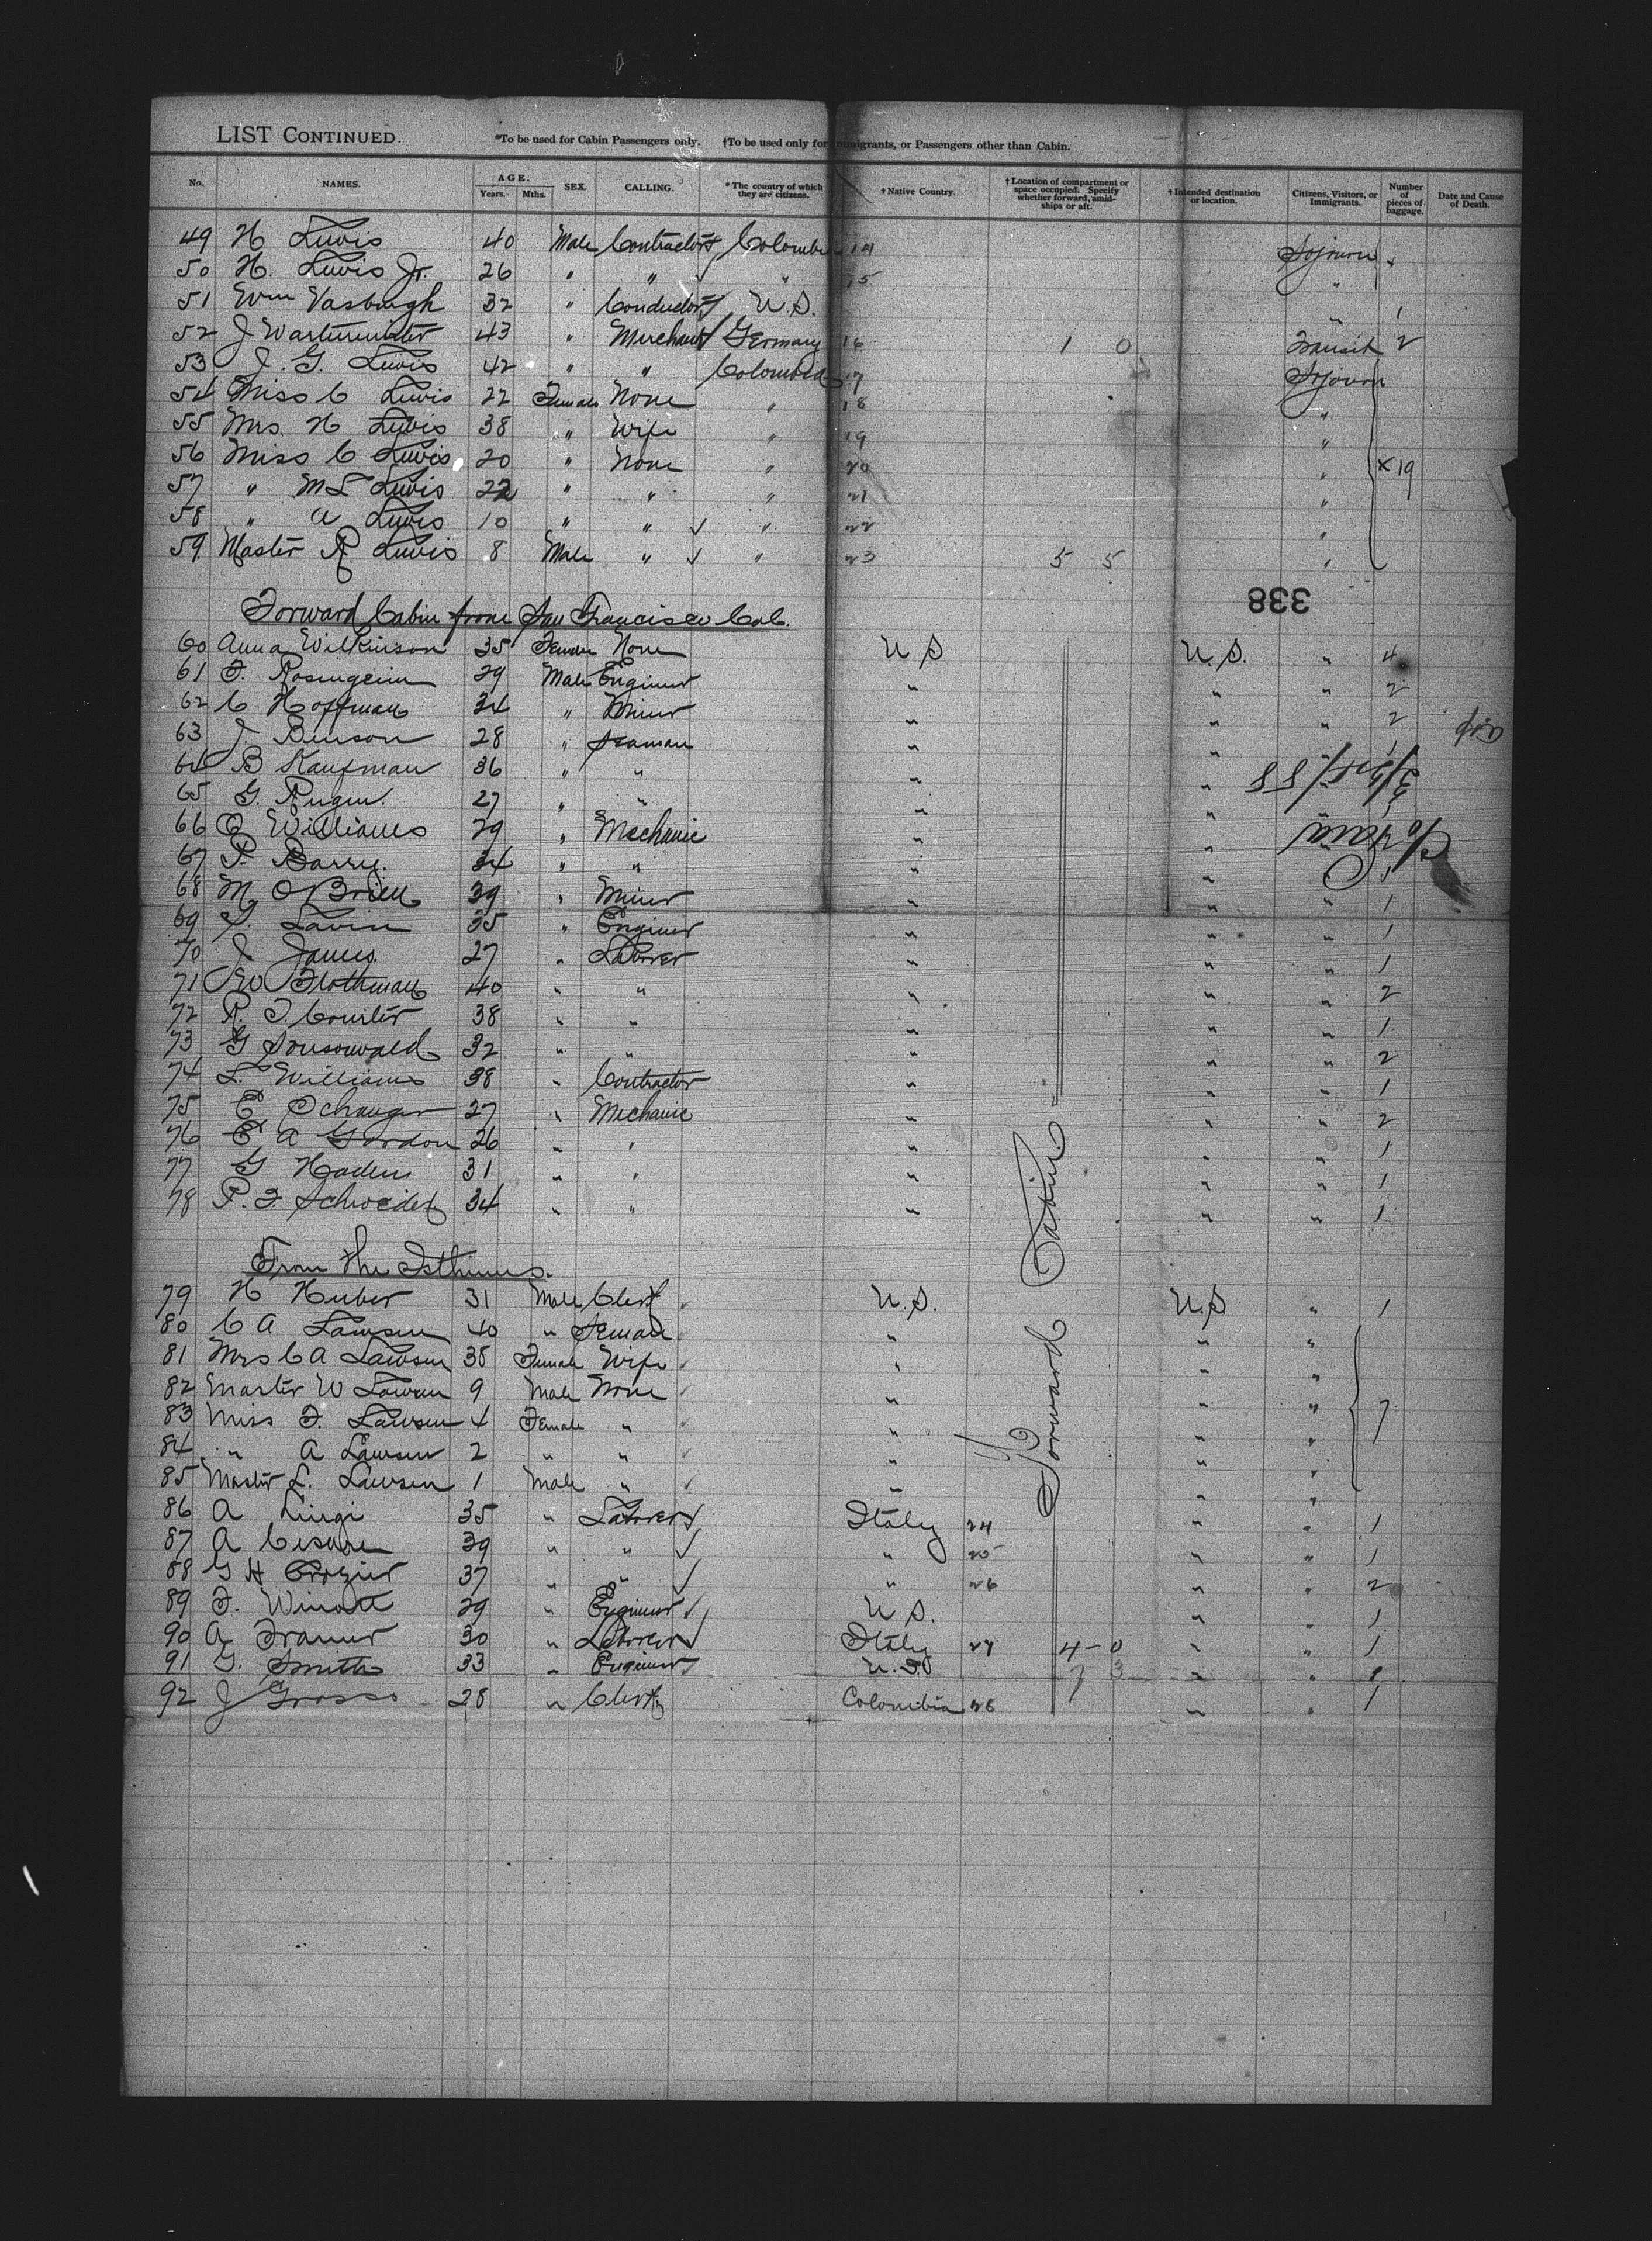 LIST CONTINUED. *To be used for Cabin Passengers only. †To be used only for Immigrants, or Passengers other than Cabin.
No. NAMES. AGE. Years. Mths. SEX. CALLING. * The country of which they are citizens. † Native Country. † Location of compartment or space occupied. Specify whether forward, amidships or aft. † Intended destination or location. Citizens, Visitors, or Immigrants. Number of pieces of baggage. Date and Cause of Death.
49 H Lewis 40 Male Contractor Colombia 14 Sojourn
50 H. Lewis Jr. 26 " " " 15 "
51 Wm Vasburgh 32 " Conductor U.S. " 1
52 J 43 " Merchant Germany 16 1 0 Transit 2
53 J. G. Lewis 42 " " Colombia 17 Sojourn
54 Miss C Lewis 22 Female None " 18 "
55 Mrs. H Lewis 38 " Wife " 19 "
56 Miss C Lewis 20 " None " 20 " x19
57 " M L Lewis 22 " " " 21 "
58 " A Lewis 10 " " " 22 "
59 Master R Lewis 8 Male " " 23 5 5 "
338
Forward Cabin from San Francisco Cal.
60 Anna Wilkinson 35 Female None U S U.S. " 4
61 F. 29 Male Engineer " " " 2
62 C Hoffman 34 " Miner " " " 2
63 J. Benson 28 " Seaman " "
64 B Kaufman 36 " " " "
65 G. 27 " " " "
66 O Williams 29 " Mechanic " "
67 P. Barry. 34 " " " " 1
68 M O'Brien 39 " Miner " " " 1
69 Lavin 35 " Engineer " " " 1
70 J. James. 27 " Laborer " " " 1
71 W Flothman 40 " " " " " 2
72 R. T. Courter 38 " " " " " 1
73 G 32 " " " " " 2
74 L. Williams 38 " Contractor " " " 1
75 E 27 " Mechanic " " " 2
76 E A Gordon 26 " " " " " 1
77 G Haden 31 " " " " " 1
78 R. F. Schroeder 34 " " " " " 1
Forward Cabin
From the Isthmus.
79 H Huber 31 Male Clerk U.S. U.S " 1
80 C A Lawson 40 " Seman " " "
81 Mrs C A Lawson 38 Female Wife " " "
82 Master W Lawson 9 Male None " " "
83 Miss F. Lawson 4 Female " " " " 7
84 " A Lawson 2 " " " " "
85 Master L. Lawson 1 Male " " " "
86 A Luigi 35 " Laborer Italy 24 " " 1
87 A Cesare 39 " " " 25 " " 1
88 G H 37 " " " 26 " " 2
89 F. 29 " Engineer U S. " " 1
90 A Framer 30 " Laborer Italy 27 4-0 " " 1
91 G. Smith 33 " Engineer U.S 7 3 " "
92 J Grosso 28 " Clerk Colombia 28 " " 1